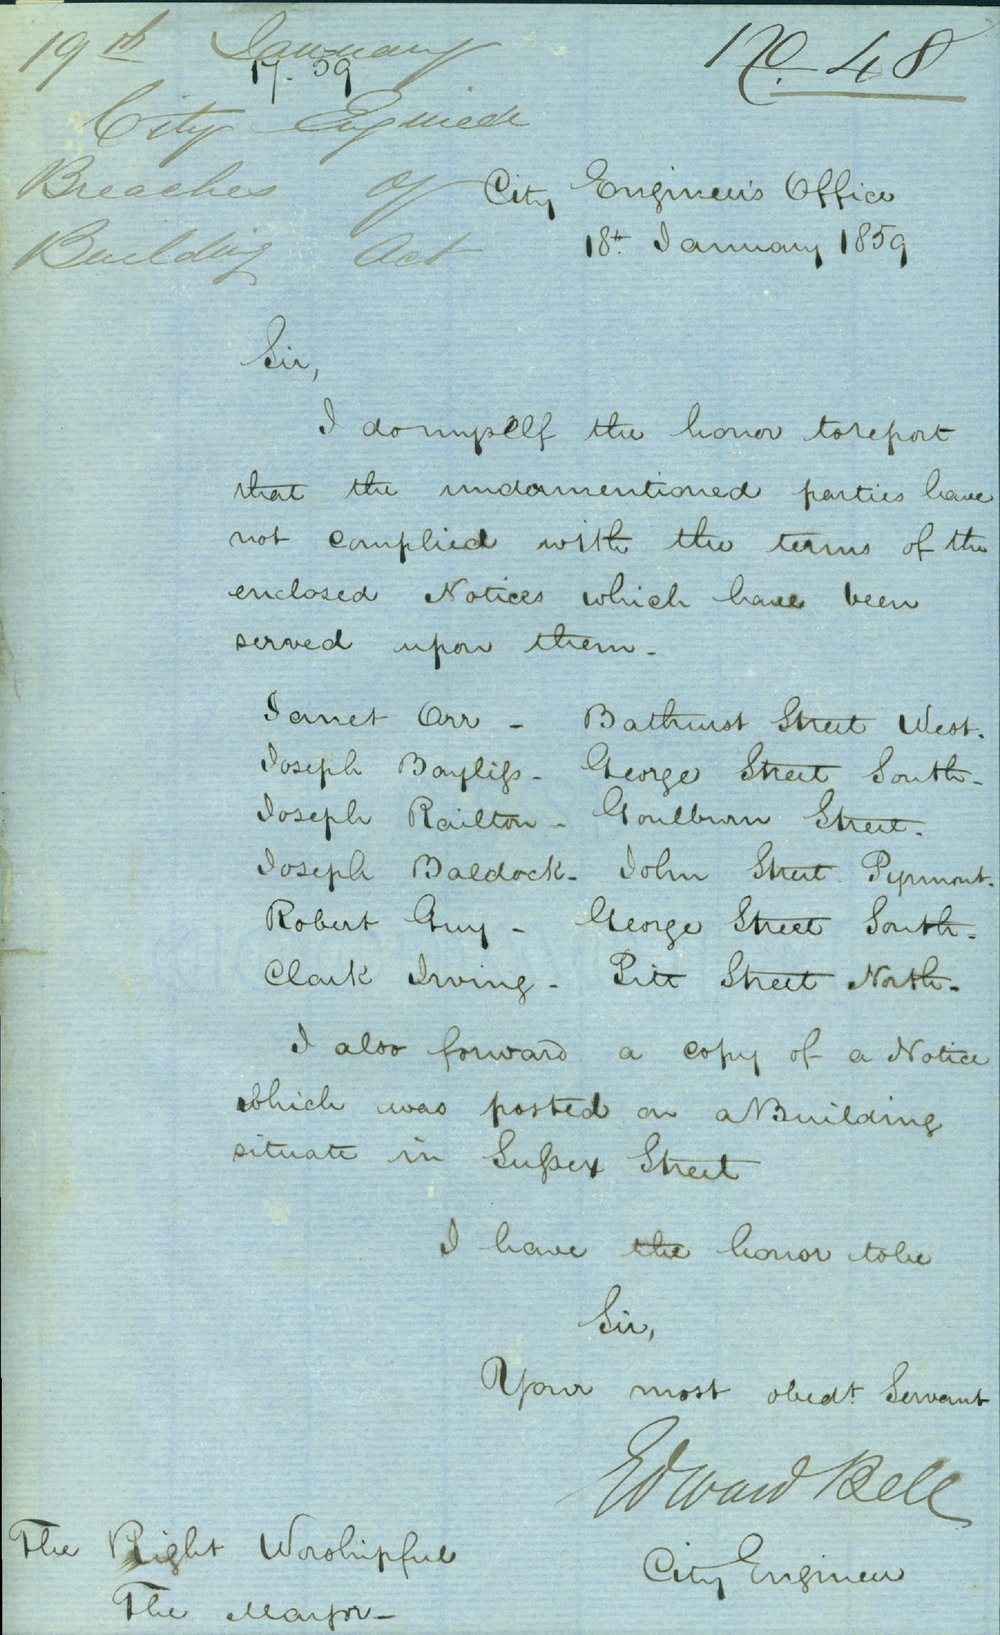 19th January
17. 59
No 48
City Engineer
Breaches of
Building Act
City Engineer's Office
18th January 1859
Sir,
I do myself the honor to report
that the undermentioned parties have
not complied with the terms of the
enclosed Notices which have been
served upon them.
Janet Orr - Bathurst Street West.
Joseph Bayliss - George Street South -
Joseph Railton - Goulburn Street.
Joseph Baldock - John Street Pyrmont.
Robert Guy - George Street South -
Clark Irving - Pitt Street North -
I also forward a copy of a Notice
which was posted on a Building
situate in Sussex Street
I have the honor to be
Sir,
Your most obedt. Servant
Edward Bell
City Engineer
The Right Worshipful
The Mayor -